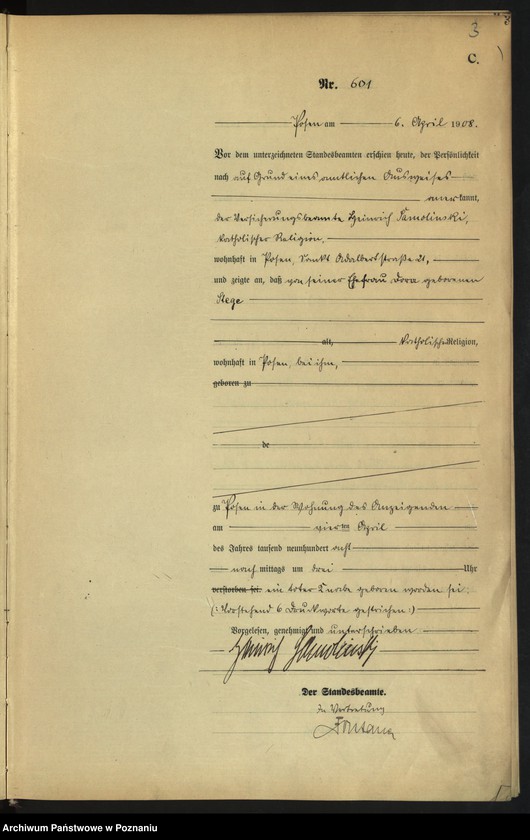 3
C.
Nr. 601
Posen am 6. April 1908.
Vor dem unterzeichneten Standesbeamten erschien heute, der Persönlichkeit
nach auf Grund eines amtlichen Ausweises
anerkannt,
der Versicherungsbeamte Heinrich Samolinski,
katholischer Religion,
wohnhaft in Posen, Sankt Adalbertstraße 21,
und zeigte an, daß von seiner Ehefrau Dora geborenen
Stege
alt, katholischer Religion,
wohnhaft in Posen, bei ihm,
geboren zu
de
zu Posen in der Wohnung des Anzeigenden
am vierten April
des Jahres tausend neunhundert acht
nachmittags um drei Uhr
verstorben sei ein toter Knabe geboren worden sei.
(: Vorstehend 6 Druckworte gestrichen :)
Vorgelesen, genehmigt und unterschrieben
Heinrich Samolinski
Der Standesbeamte.
In Vertretung
Fontana
Archiwum Państwowe w Poznaniu